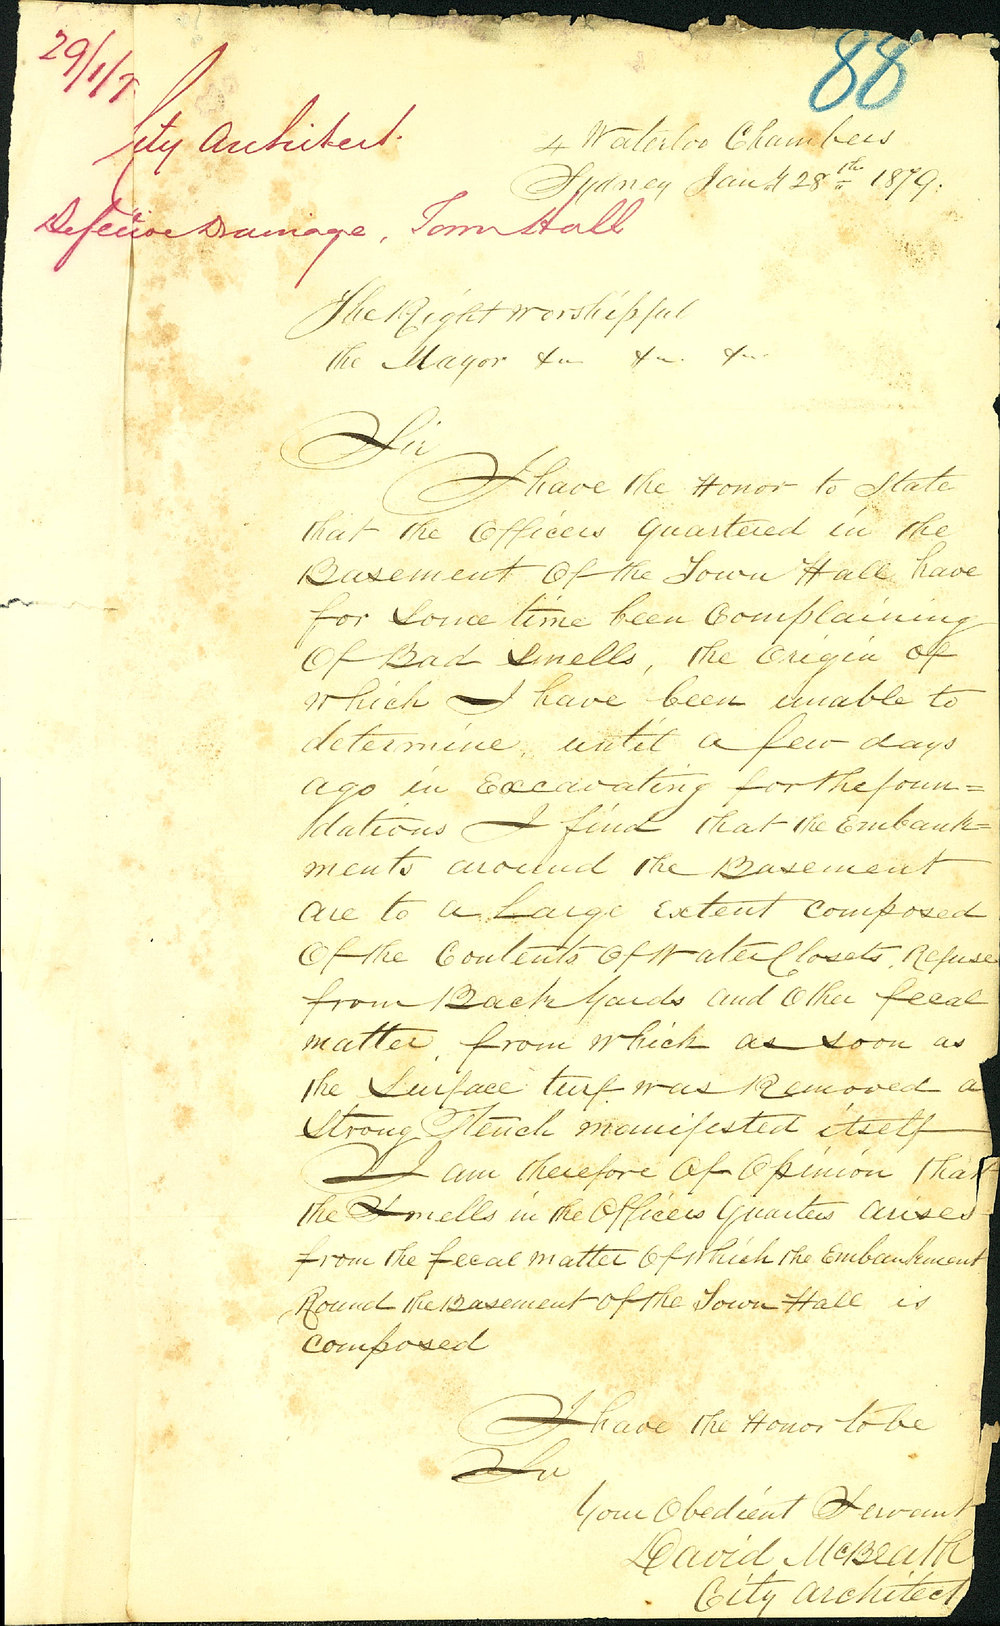 29/1/7
88
City Architect.
4 Waterloo Chambers
Sydney Jany 28th 1879.
Defective Drainage, Town Hall
The Right Worshipful
the Mayor &c &c. &c.
Sir
I have the Honor to State
that the Officers Quartered in the
Basement Of the Town Hall have
for Some time been Complaining
Of Bad Smells, the Origin of
which I have been unable to
determine, until a few days
ago in Excavating for the foun=
dations I find that the Embank=
ments around the Basement
are to a Large Extent Composed
Of the Contents Of Water Closets, Refuse
from Back Yards and Other fecal
matter, from which as soon as
the Surface turf was Removed a
Strong Stench manifested itself
I am therefore Of Opinion that
the Smells in the Officers Quarters arises
from the fecal matter Of Which the Embankment
Round the Basement of the Town Hall is
Composed
I have the Honor to be
Sir
Your Obedient Servant
David McBeath
City Architect